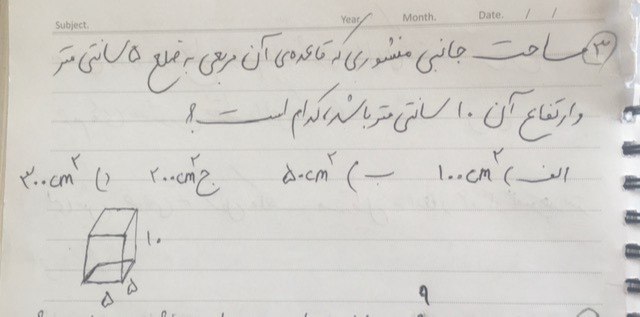 Subject. Year. Month. Date. / /
۳ مساحت جانبی منشوری که قاعده‌ی آن مربعی به ضلع ۵ سانتی متر
و ارتفاع آن ۱۰ سانتی متر باشد، کدام است؟
الف) ۱۰۰cm۲ ب) ۵۰cm۲ ج) ۲۰۰cm۲ د) ۳۰۰cm۲
۱۰
۵ ۵